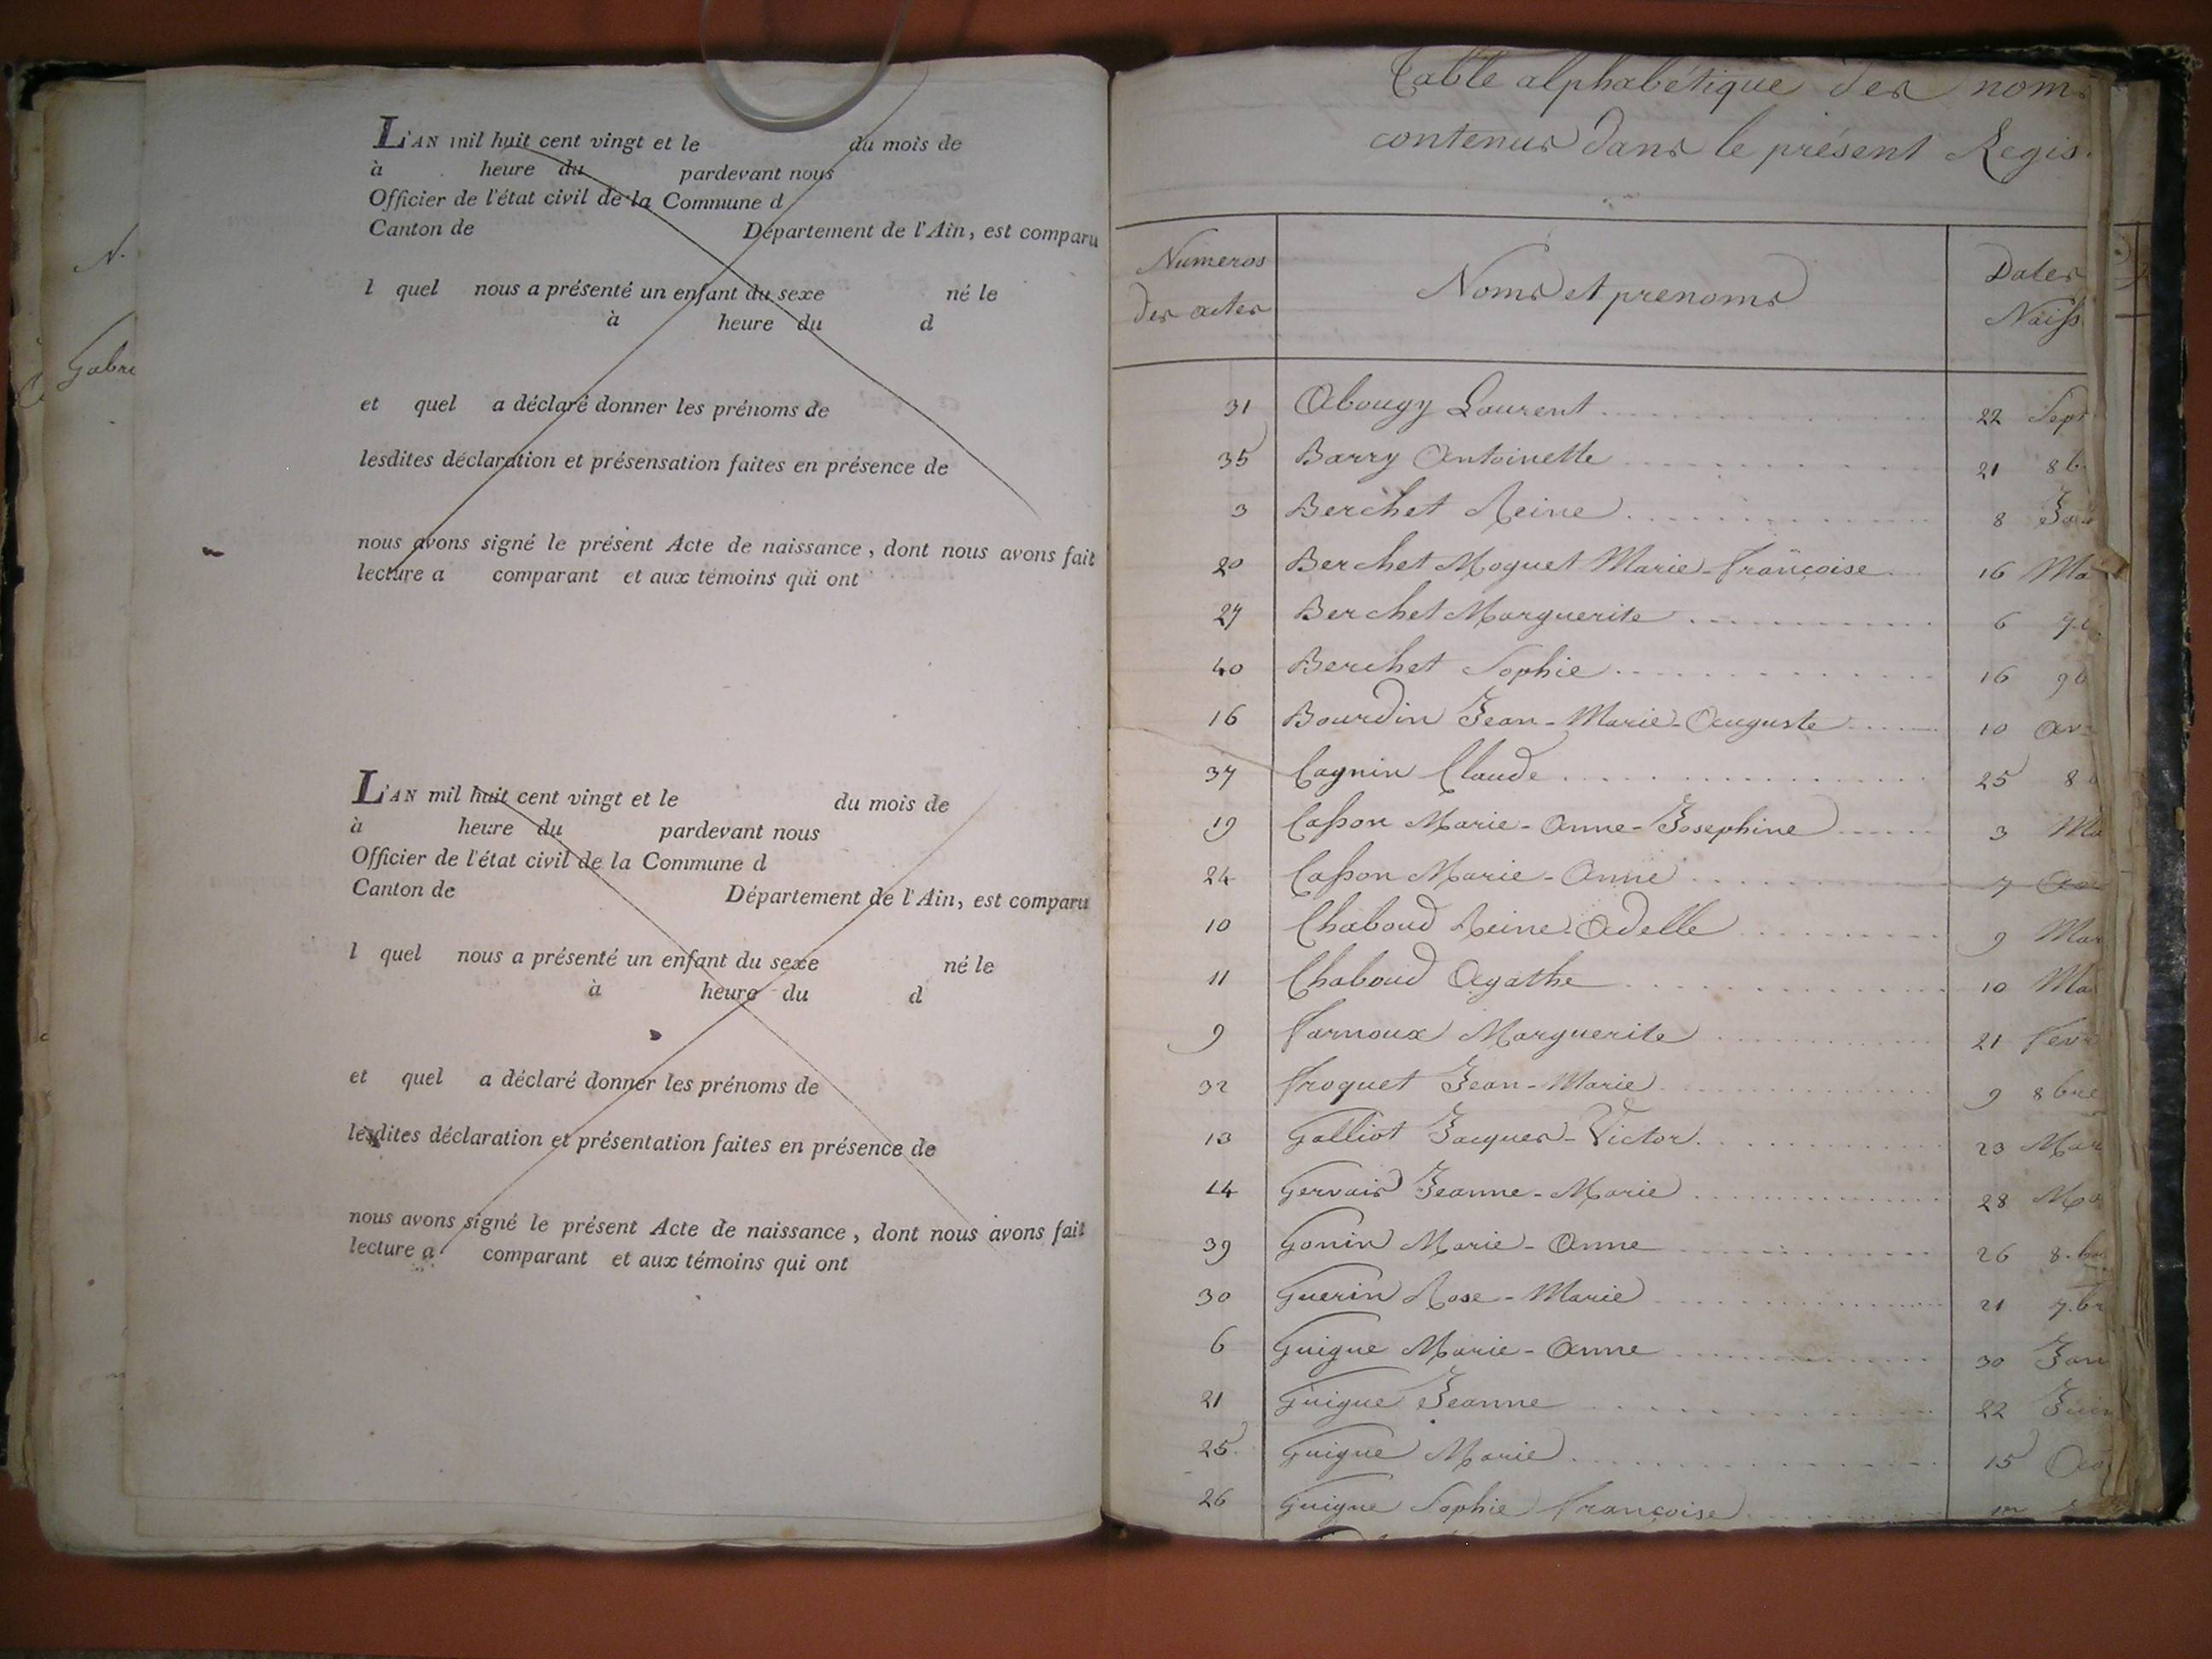 N.
Gabri
L'AN mil huit cent vingt et le du mois de
à heure du pardevant nous
Officier de l'état civil de la Commune d
Canton de Département de l'Ain, est comparu
l quel nous a présenté un enfant du sexe né le
à heure du d
et quel a déclaré donner les prénoms de
lesdites déclaration et présensation faites en présence de
nous avons signé le présent Acte de naissance, dont nous avons fait
lecture a comparant et aux témoins qui ont
L'AN mil huit cent vingt et le du mois de
à heure du pardevant nous
Officier de l'état civil de la Commune d
Canton de Département de l'Ain, est comparu
l quel nous a présenté un enfant du sexe né le
à heure du d
et quel a déclaré donner les prénoms de
lesdites déclaration et présentation faites en présence de
nous avons signé le présent Acte de naissance, dont nous avons fait
lecture a comparant et aux témoins qui ont
Table alphabétique des noms
contenus dans le présent Regis
Numeros des actes Noms et prenoms Dates Naiss
31 Abougy Laurent 22 Sept
35 Barry Antoinette 21 8b
3 Berchet Reine 8 Jan
20 Berchet Moguet Marie-Françoise 16 Ma
27 Berchet Marguerite 6 7b
40 Berchet Sophie 16 9b
16 Bourdin Jean-Marie-Auguste 10 Av
37 Cagnin Claude 25 8
19 Casson Marie-Anne-Josephine 3 Ma
24 Casson Marie-Anne 7
10 Chaboud Reine Adelle 9 Mar
11 Chaboud Agathe 10 Ma
9 Farnoux Marguerite 21 Fevr
32 Froquet Jean-Marie 9 8bre
13 Galliot Jacques-Victor 23 Mar
14 Gervais Jeanne-Marie 28 Ma
39 Gonin Marie-Anne 26 8.b
30 Guerin Rose-Marie 21 7.br
6 Guigue Marie-Anne 30 Jan
21 Guigue Jeanne 22 Juin
25 Guigue Marie 15
26 Guigue Sophie Françoise